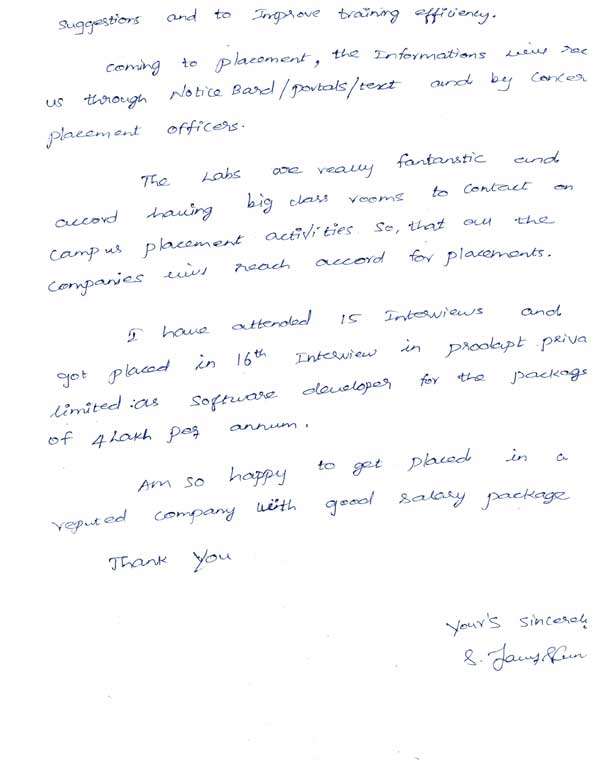 suggestions and to Improve training efficiency.
coming to placement, the Informations will rec
us through Notice Bard/portals/text and by concer
placement officers.
The Labs are really fantanstic and
accord having big class rooms to contact on
campus placement activities so, that all the
companies will reach accord for placements.
I have attended 15 Interviews and
got placed in 16th Interview in prodapt priva
limited as software developer for the package
of 4 Lakh per annum.
Am so happy to get placed in a
reputed company with good salary package
Thank You
Your's sincerely
S.